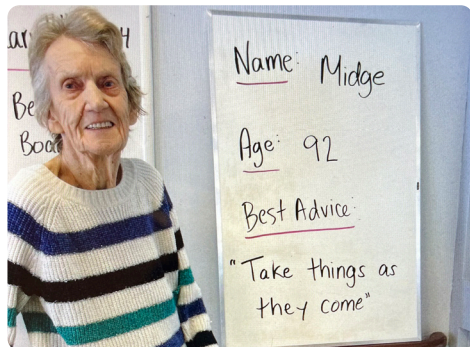 Name: Midge
Age: 92
Best Advice:
"Take things as
they come"